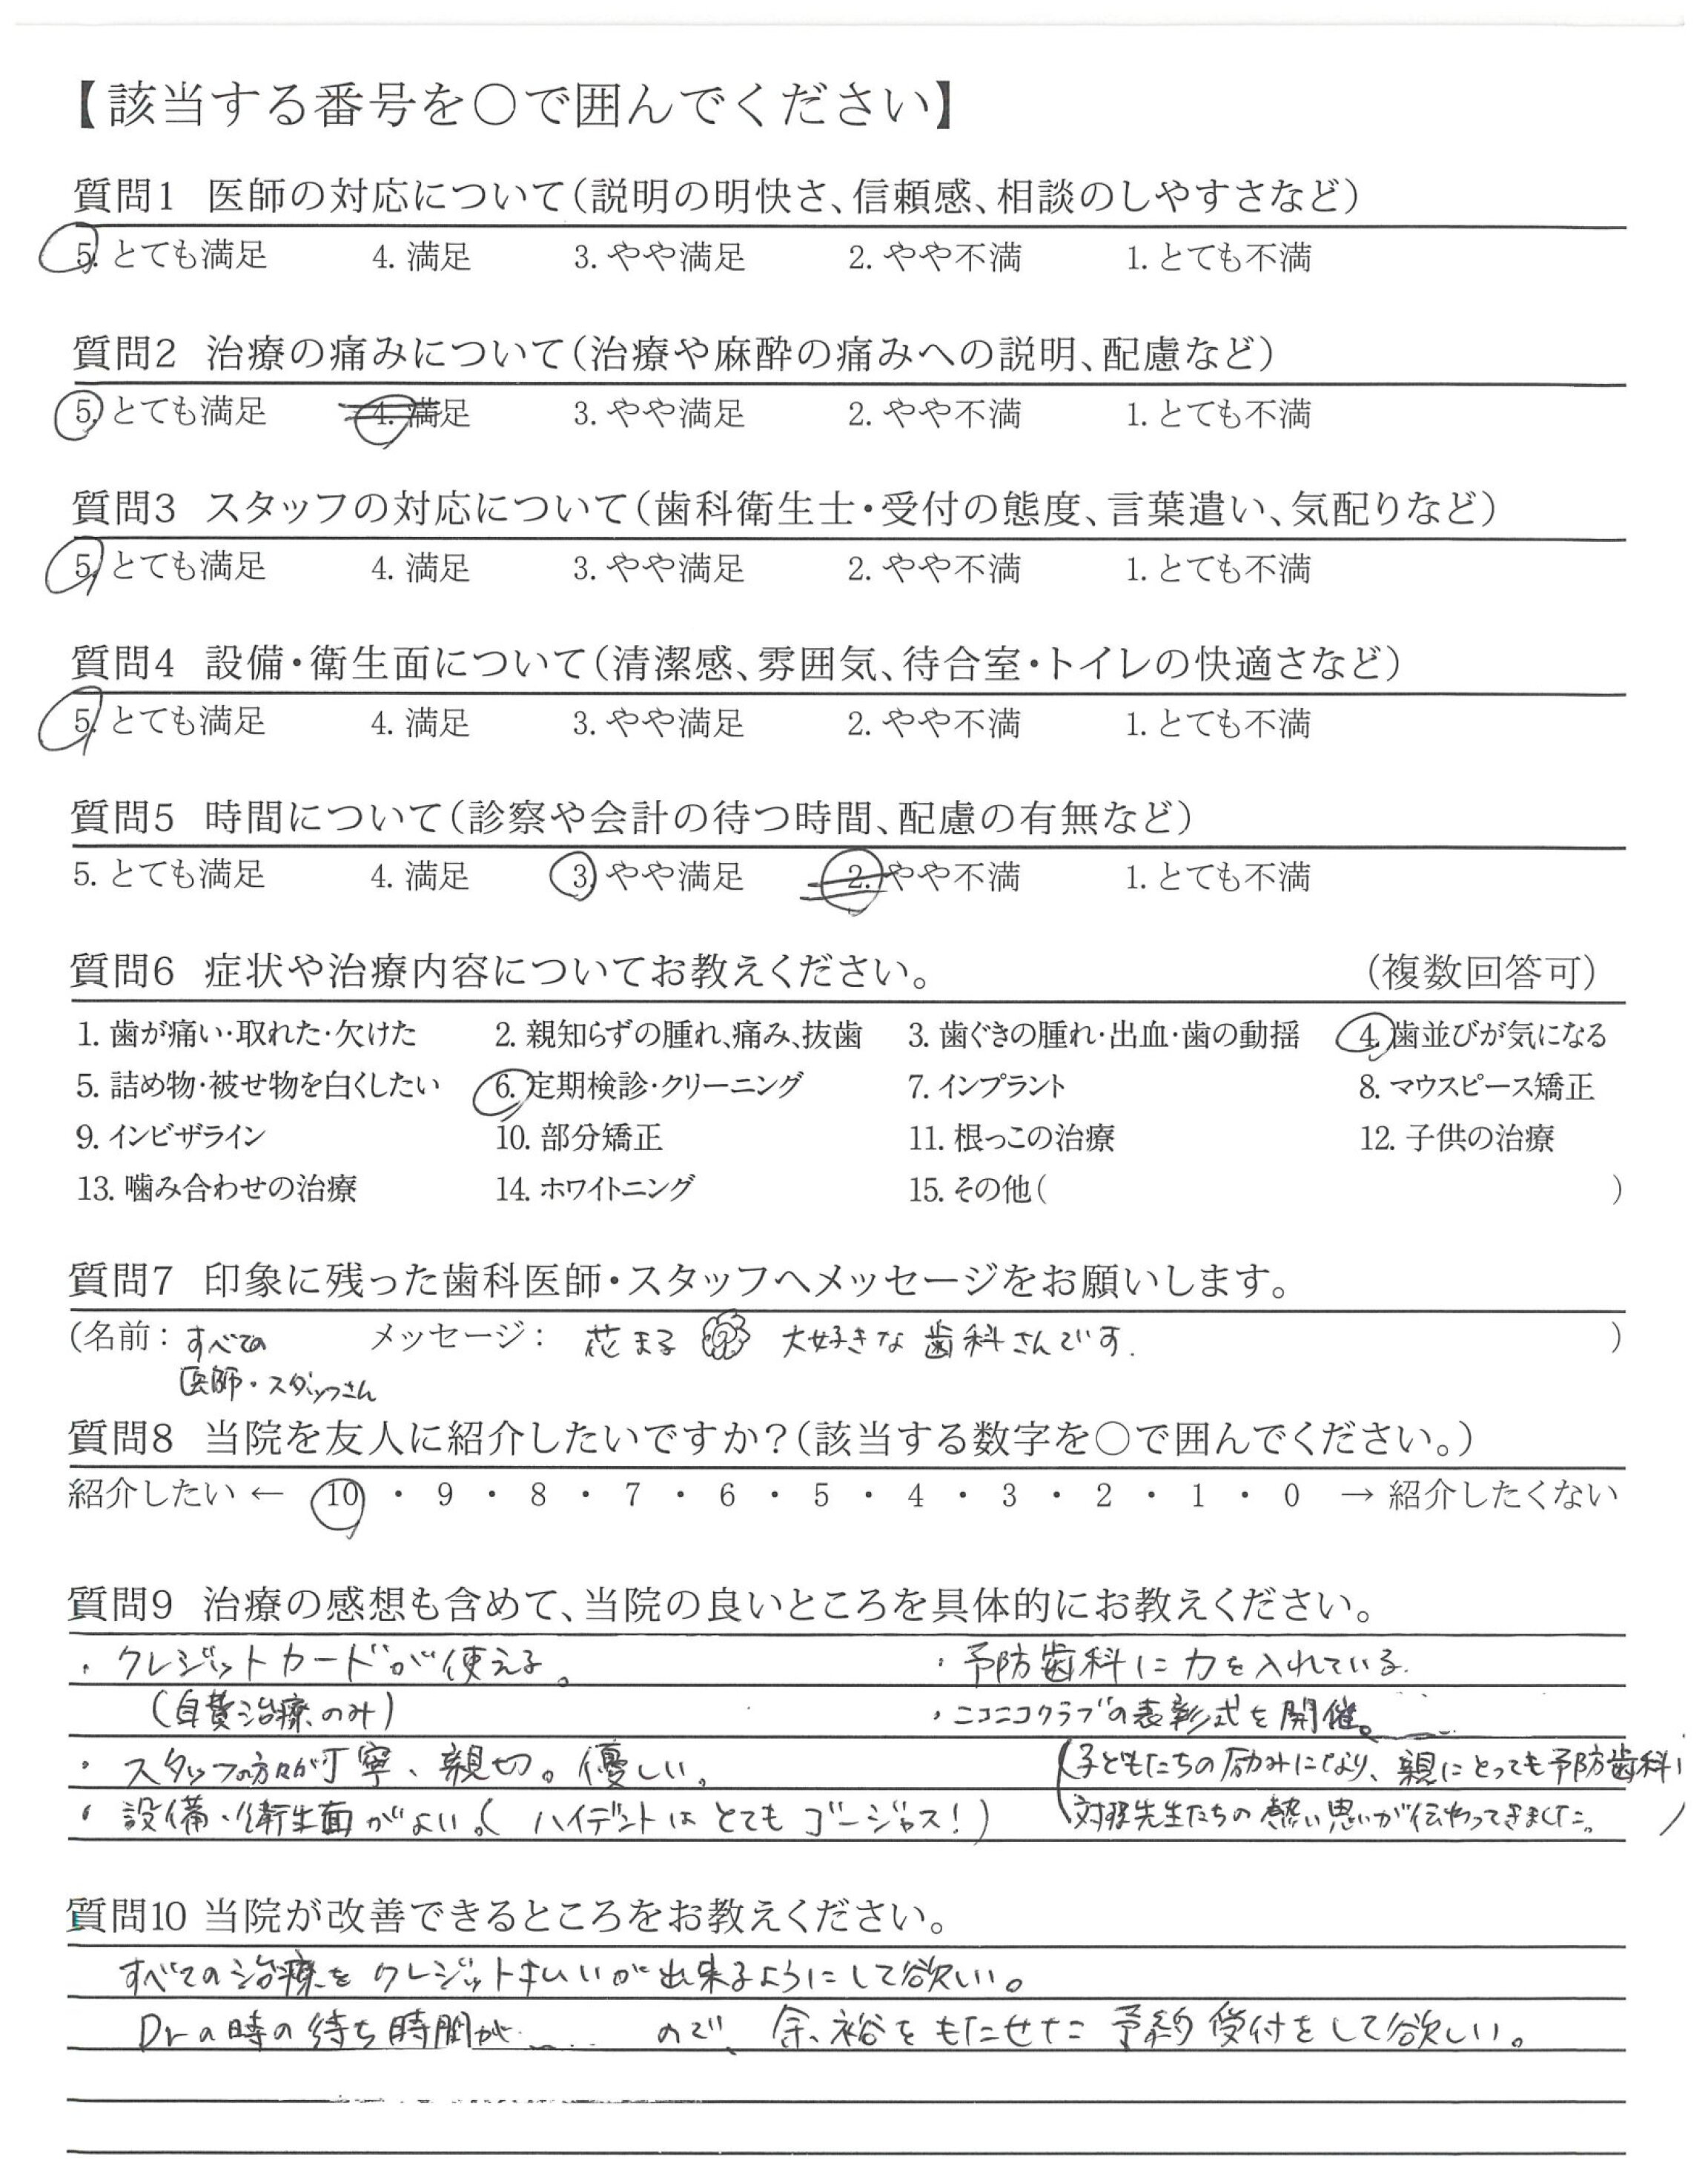 【該当する番号を○で囲んでください】
質問1 医師の対応について(説明の明快さ、信頼感、相談のしやすさなど)
5. とても満足 4. 満足 3. やや満足 2. やや不満 1. とても不満
質問2 治療の痛みについて(治療や麻酔の痛みへの説明、配慮など)
5. とても満足 4. 満足 3. やや満足 2. やや不満 1. とても不満
質問3 スタッフの対応について(歯科衛生士・受付の態度、言葉遣い、気配りなど)
5. とても満足 4. 満足 3. やや満足 2. やや不満 1. とても不満
質問4 設備・衛生面について(清潔感、雰囲気、待合室・トイレの快適さなど)
5. とても満足 4. 満足 3. やや満足 2. やや不満 1. とても不満
質問5 時間について(診察や会計の待つ時間、配慮の有無など)
5. とても満足 4. 満足 3. やや満足 2. やや不満 1. とても不満
質問6 症状や治療内容についてお教えください。 (複数回答可)
1. 歯が痛い・取れた・欠けた 2. 親知らずの腫れ、痛み、抜歯 3. 歯ぐきの腫れ・出血・歯の動揺 4. 歯並びが気になる
5. 詰め物・被せ物を白くしたい 6. 定期検診・クリーニング 7. インプラント 8. マウスピース矯正
9. インビザライン 10. 部分矯正 11. 根っこの治療 12. 子供の治療
13. 噛み合わせの治療 14. ホワイトニング 15. その他( )
質問7 印象に残った歯科医師・スタッフへメッセージをお願いします。
(名前: すべての メッセージ: 花まる 大好きな歯科さんです. )
医師・スタッフさん
質問8 当院を友人に紹介したいですか?(該当する数字を○で囲んでください。)
紹介したい ← 10 ・ 9 ・ 8 ・ 7 ・ 6 ・ 5 ・ 4 ・ 3 ・ 2 ・ 1 ・ 0 → 紹介したくない
質問9 治療の感想も含めて、当院の良いところを具体的にお教えください。
・クレジットカードが使える。 ・予防歯科に力を入れている.
(自費治療のみ) ・ニコニコクラブの表彰式を開催。
・スタッフの方々が丁寧、親切。優しい。 (子どもたちの励みになり、親にとっても予防歯科に
・設備・衛生面がよい。(ハイデントはとてもゴージャス!) 対する先生たちの熱い思いが伝わってきました。)
質問10 当院が改善できるところをお教えください。
すべての治療をクレジット払いが出来るようにして欲しい。
Drの時の待ち時間が ので、余裕をもたせた予約受付をして欲しい。